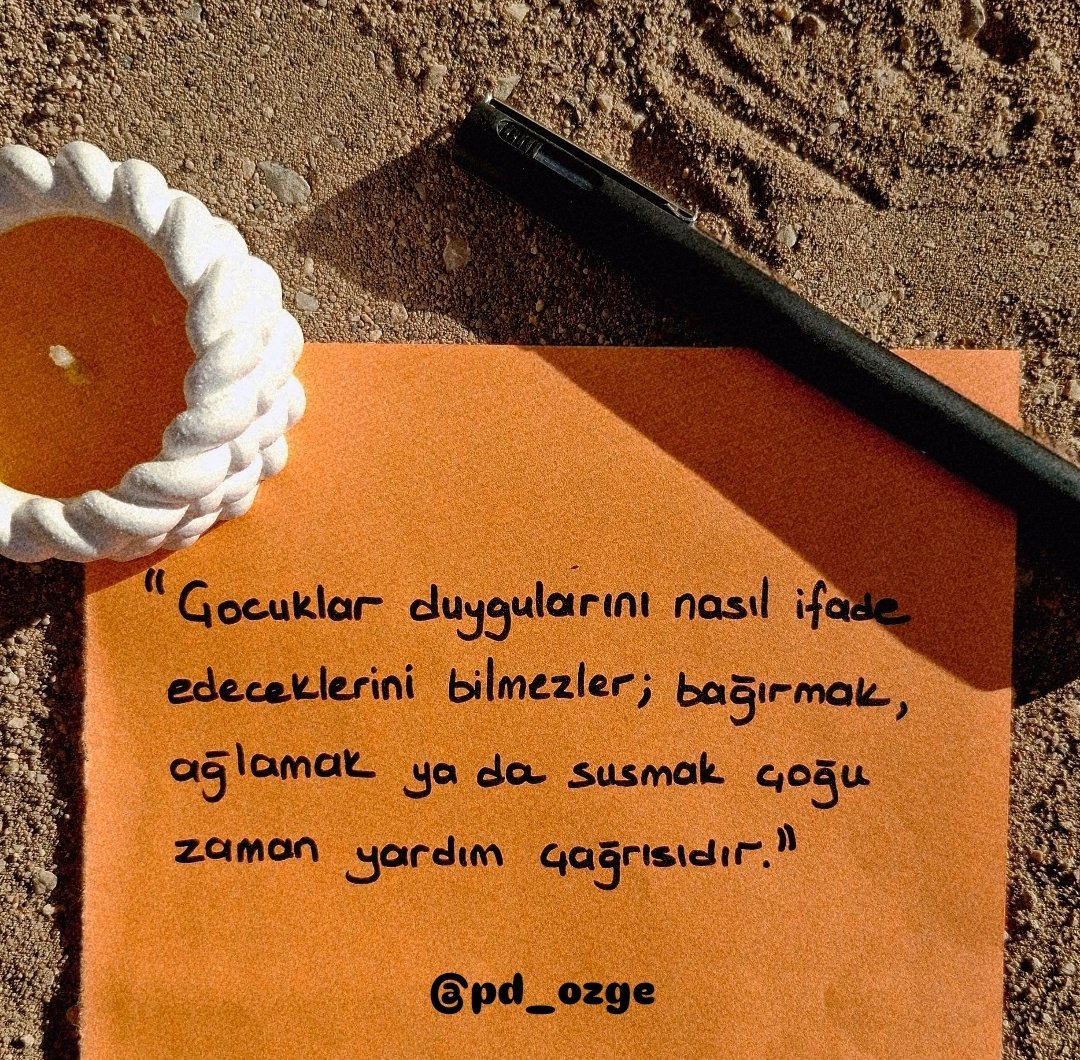 "Çocuklar duygularını nasıl ifade
edeceklerini bilmezler; bağırmak,
ağlamak ya da susmak çoğu
zaman yardım çağrısıdır."
@pd_ozge